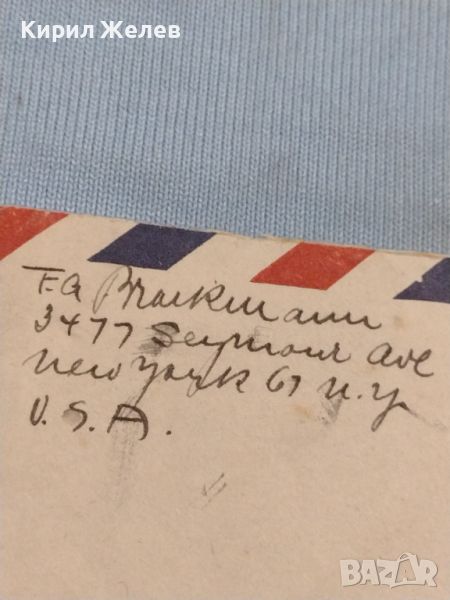 Кирил Желев
F.A Brackmann
3477 Seymour Ave
New York 67 N.Y
U.S.A.
BAZAR